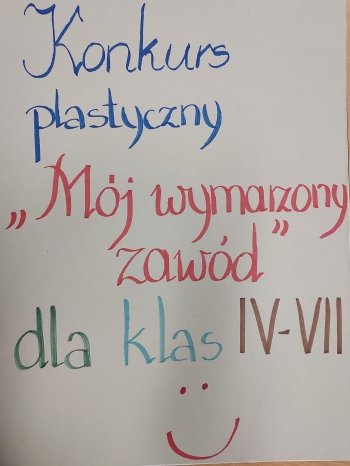 Konkurs
plastyczny
„Mój wymarzony
zawód"
dla klas IV-VII